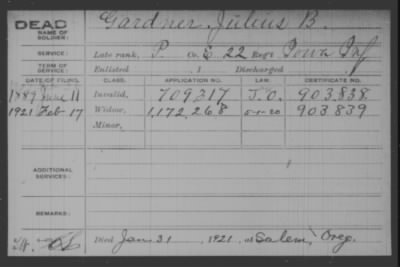 DEAD
NAME OF SOLDIER:
Gardner, Julius B.
SERVICE:
Late rank, P. Co. E, 22 Reg't Iowa Inf
TERM OF SERVICE:
Enlisted , 1 Discharged , 1
DATE OF FILING. CLASS. APPLICATION NO. LAW. CERTIFICATE NO.
1889 June 11 Invalid, 709217 J.O. 903.838
1921 Feb 17 Widow, 1,172,268 903839
Minor,
ADDITIONAL SERVICES:
REMARKS:
Died Jan 31 , 1921, at Salem, Oreg.